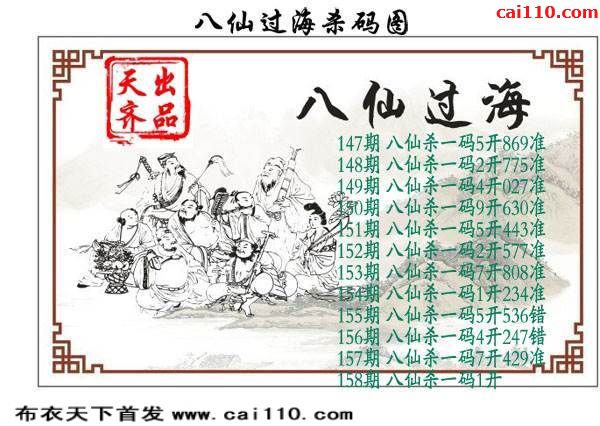 八仙过海杀码图
cai110.com
天出
齐品
八仙过海
147期 八仙杀一码5开869准
148期 八仙杀一码2开775准
149期 八仙杀一码4开027准
150期 八仙杀一码9开630准
151期 八仙杀一码5开443准
152期 八仙杀一码2开577准
153期 八仙杀一码7开808准
154期 八仙杀一码1开234准
155期 八仙杀一码5开536错
156期 八仙杀一码4开247错
157期 八仙杀一码7开429准
158期 八仙杀一码1开
布衣天下首发 www.cai110.com